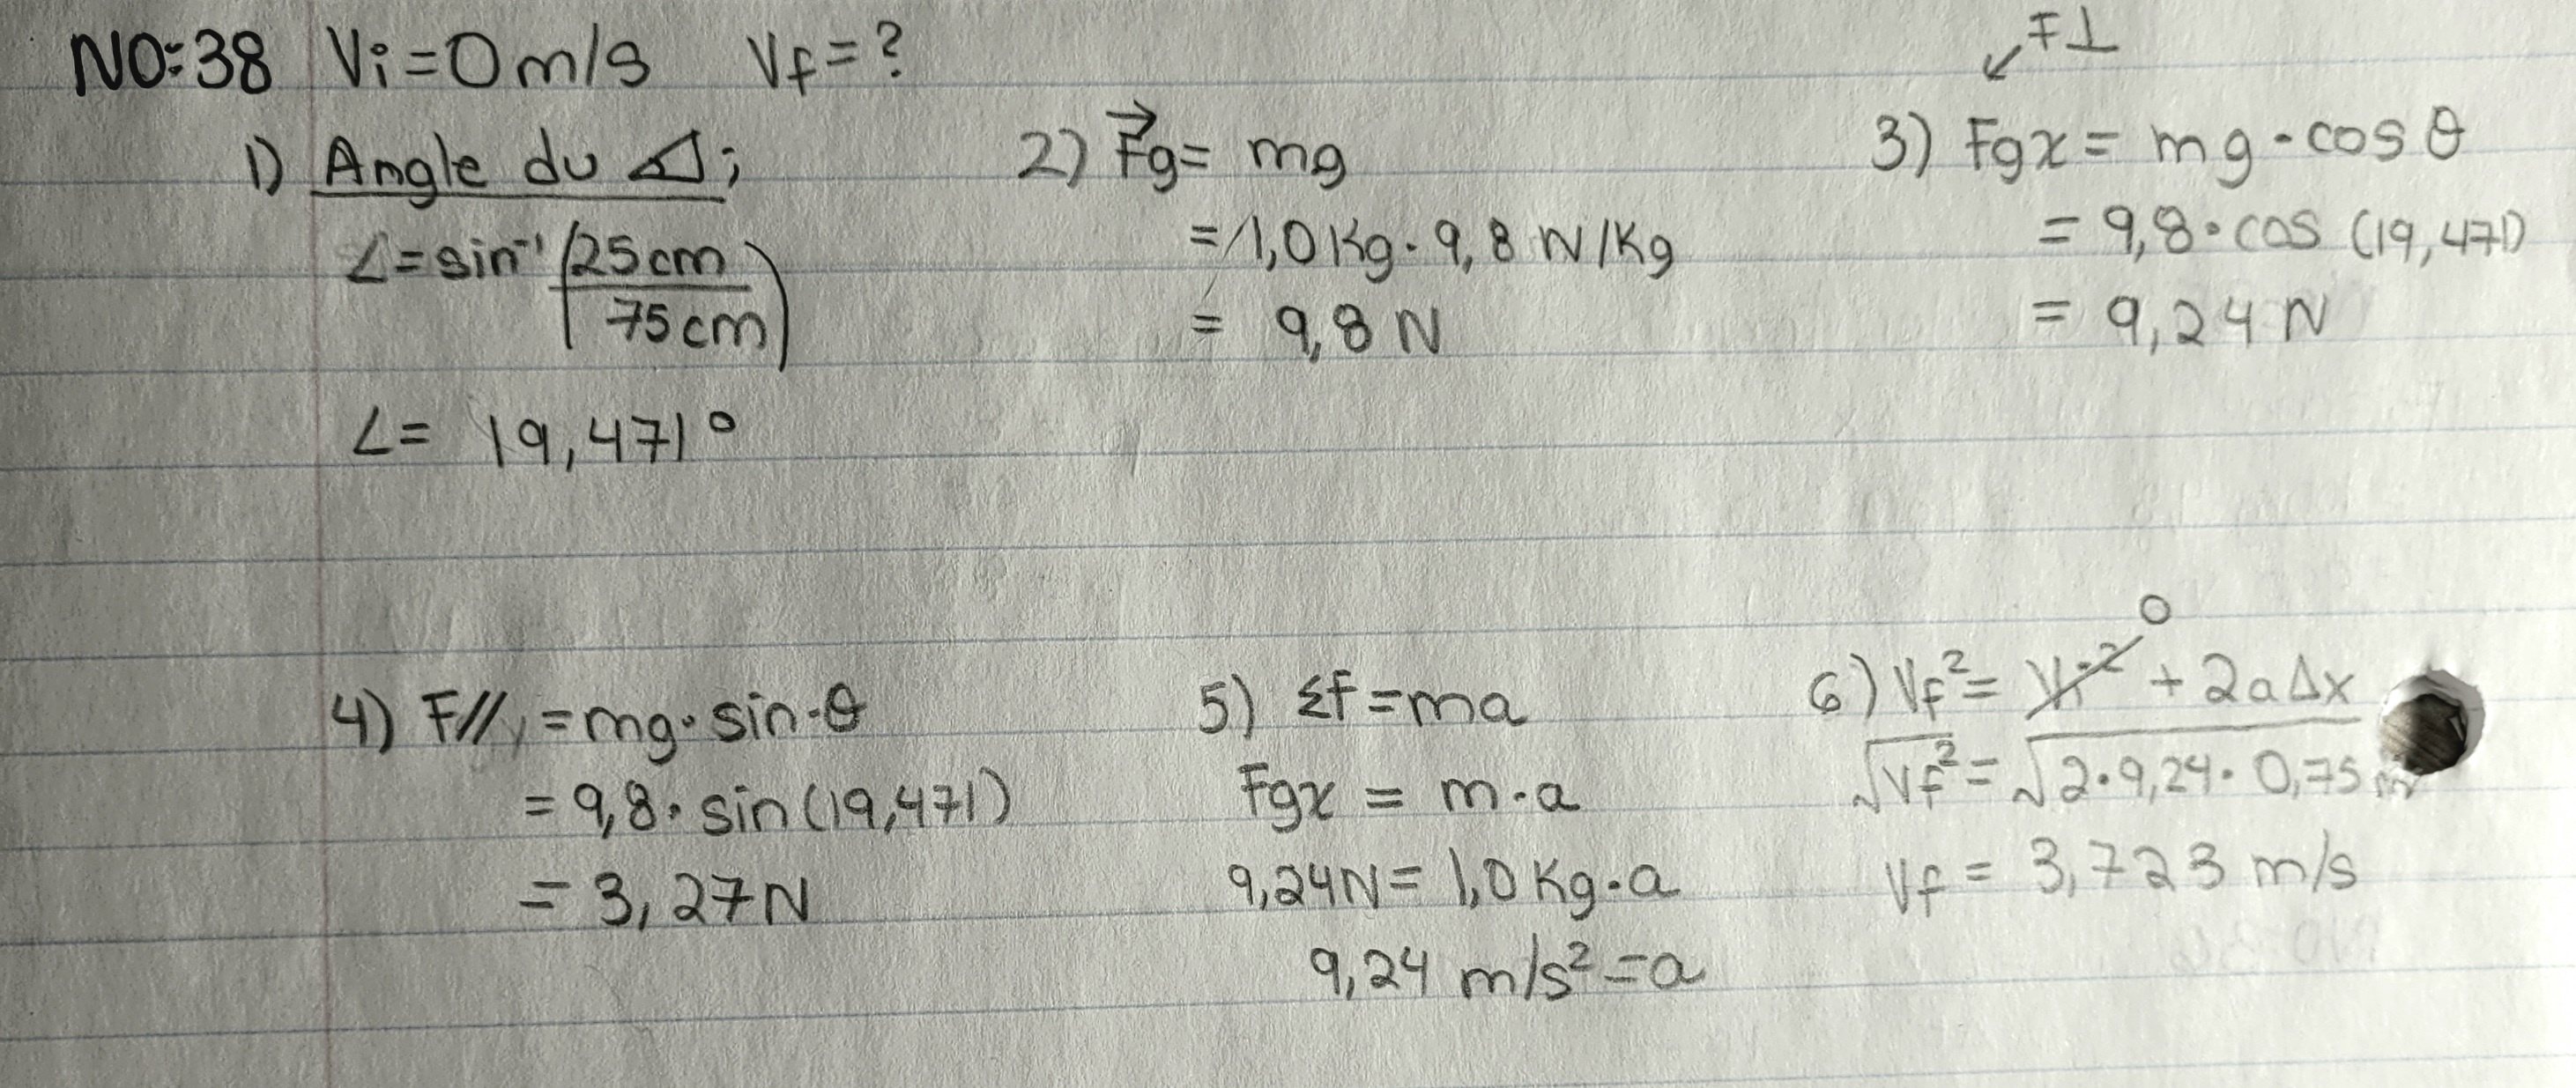 NO:38 Vi=0m/s Vf=?
1) Angle du ⊿;
∠=sin⁻¹(25cm/75cm)
∠= 19,471°
2) F⃗g= mg
=1,0Kg·9,8 N/Kg
= 9,8 N
↙F⊥
3) Fgx= mg·cos θ
= 9,8·cos (19,471)
= 9,24 N
4) F// =mg·sin·θ
=9,8·sin(19,471)
= 3,27N
5) Σf=ma
Fgx = m·a
9,24N= 1,0Kg·a
9,24 m/s²=a
0
6) Vf²= Vi² + 2aΔx
√Vf²= √2·9,24·0,75m
Vf = 3,723 m/s